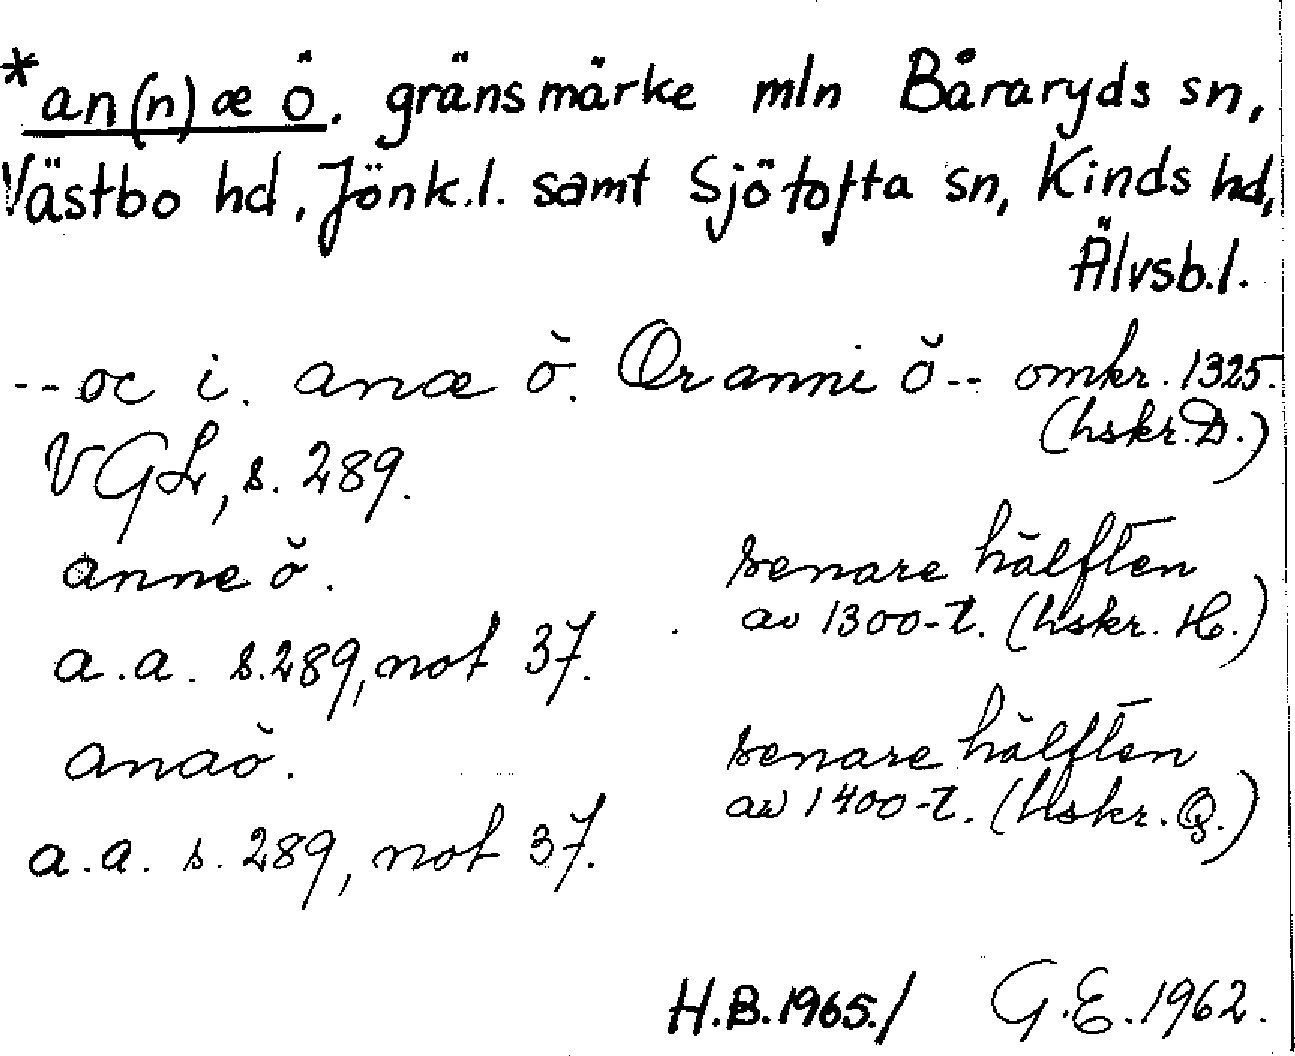 *an(n)æ ö. gränsmärke mln Båraryds sn,
Västbo hd, Jönk.l. samt Sjötofta sn, Kinds hd,
Älvsb.l.
--oc i. anæ ö. Or anni ö-- omkr. 1325.
(hskr. D.)
VGL, s. 289.
anne ö. senare hälften
a.a. s.289, not 37. av 1300-t. (hskr. H.)
anaö. senare hälften
av 1400-t. (hskr. Q.)
a.a. s. 289, not 37.
H.B.1965./ G.E.1962.